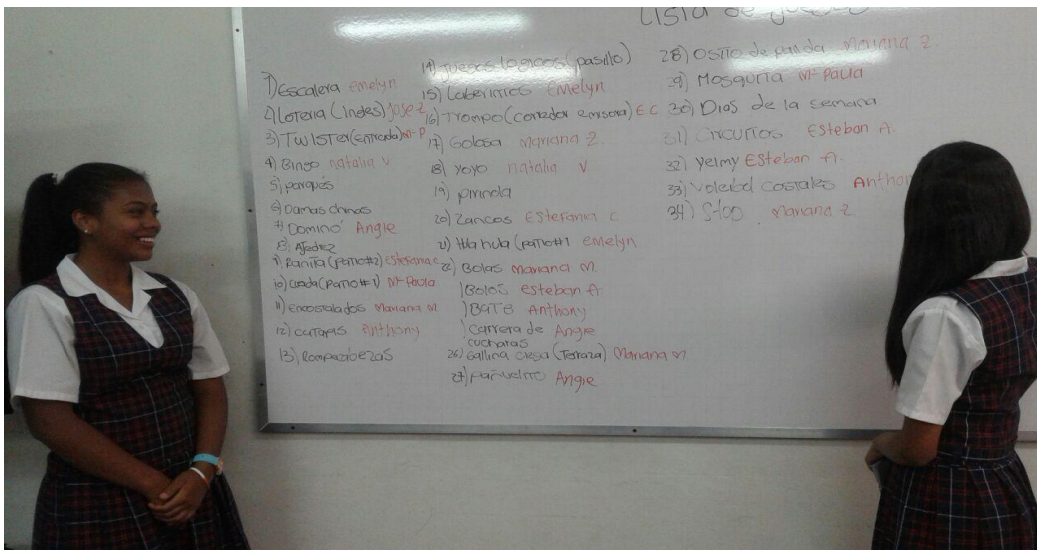 Lista de juegos
1) Escalera Emelyn
2) Loteria (Ingles) Jose Z
3) Twister (entrada) Mª P
4) Bingo natalia V
5) parques
6) Damas chinas
7) Domino Angie
8) Ajedrez
9) Ranita (patio#2) Estefania C
10) (patio#1) Mª Paula
11) encostalados Mariana M
12) catapis Anthony
13) Rompecabezas
14) juegos logicos (pasillo)
15) Laberintos Emelyn
16) Trompo (corredor emisora) E C
17) Golosa Mariana Z.
18) yoyo natalia V
19) pirinola
20) Zancos Estefania C
21) Hula hula (patio#1 emelyn
22) Bolas Mariana M.
)Bolos esteban A
)BaTe Anthony
)carrera de Angie
cucharas
26) Gallina ciega (Terraza) Mariana M
27) pañuelito Angie
28) Osito de panda Mariana Z.
29) Mosquita Mª Paula
30) Dias de la semana
31) Circuitos Esteban A.
32) yelmy Esteban A.
33) Voleibol costales Anthon
34) Stop Mariana Z